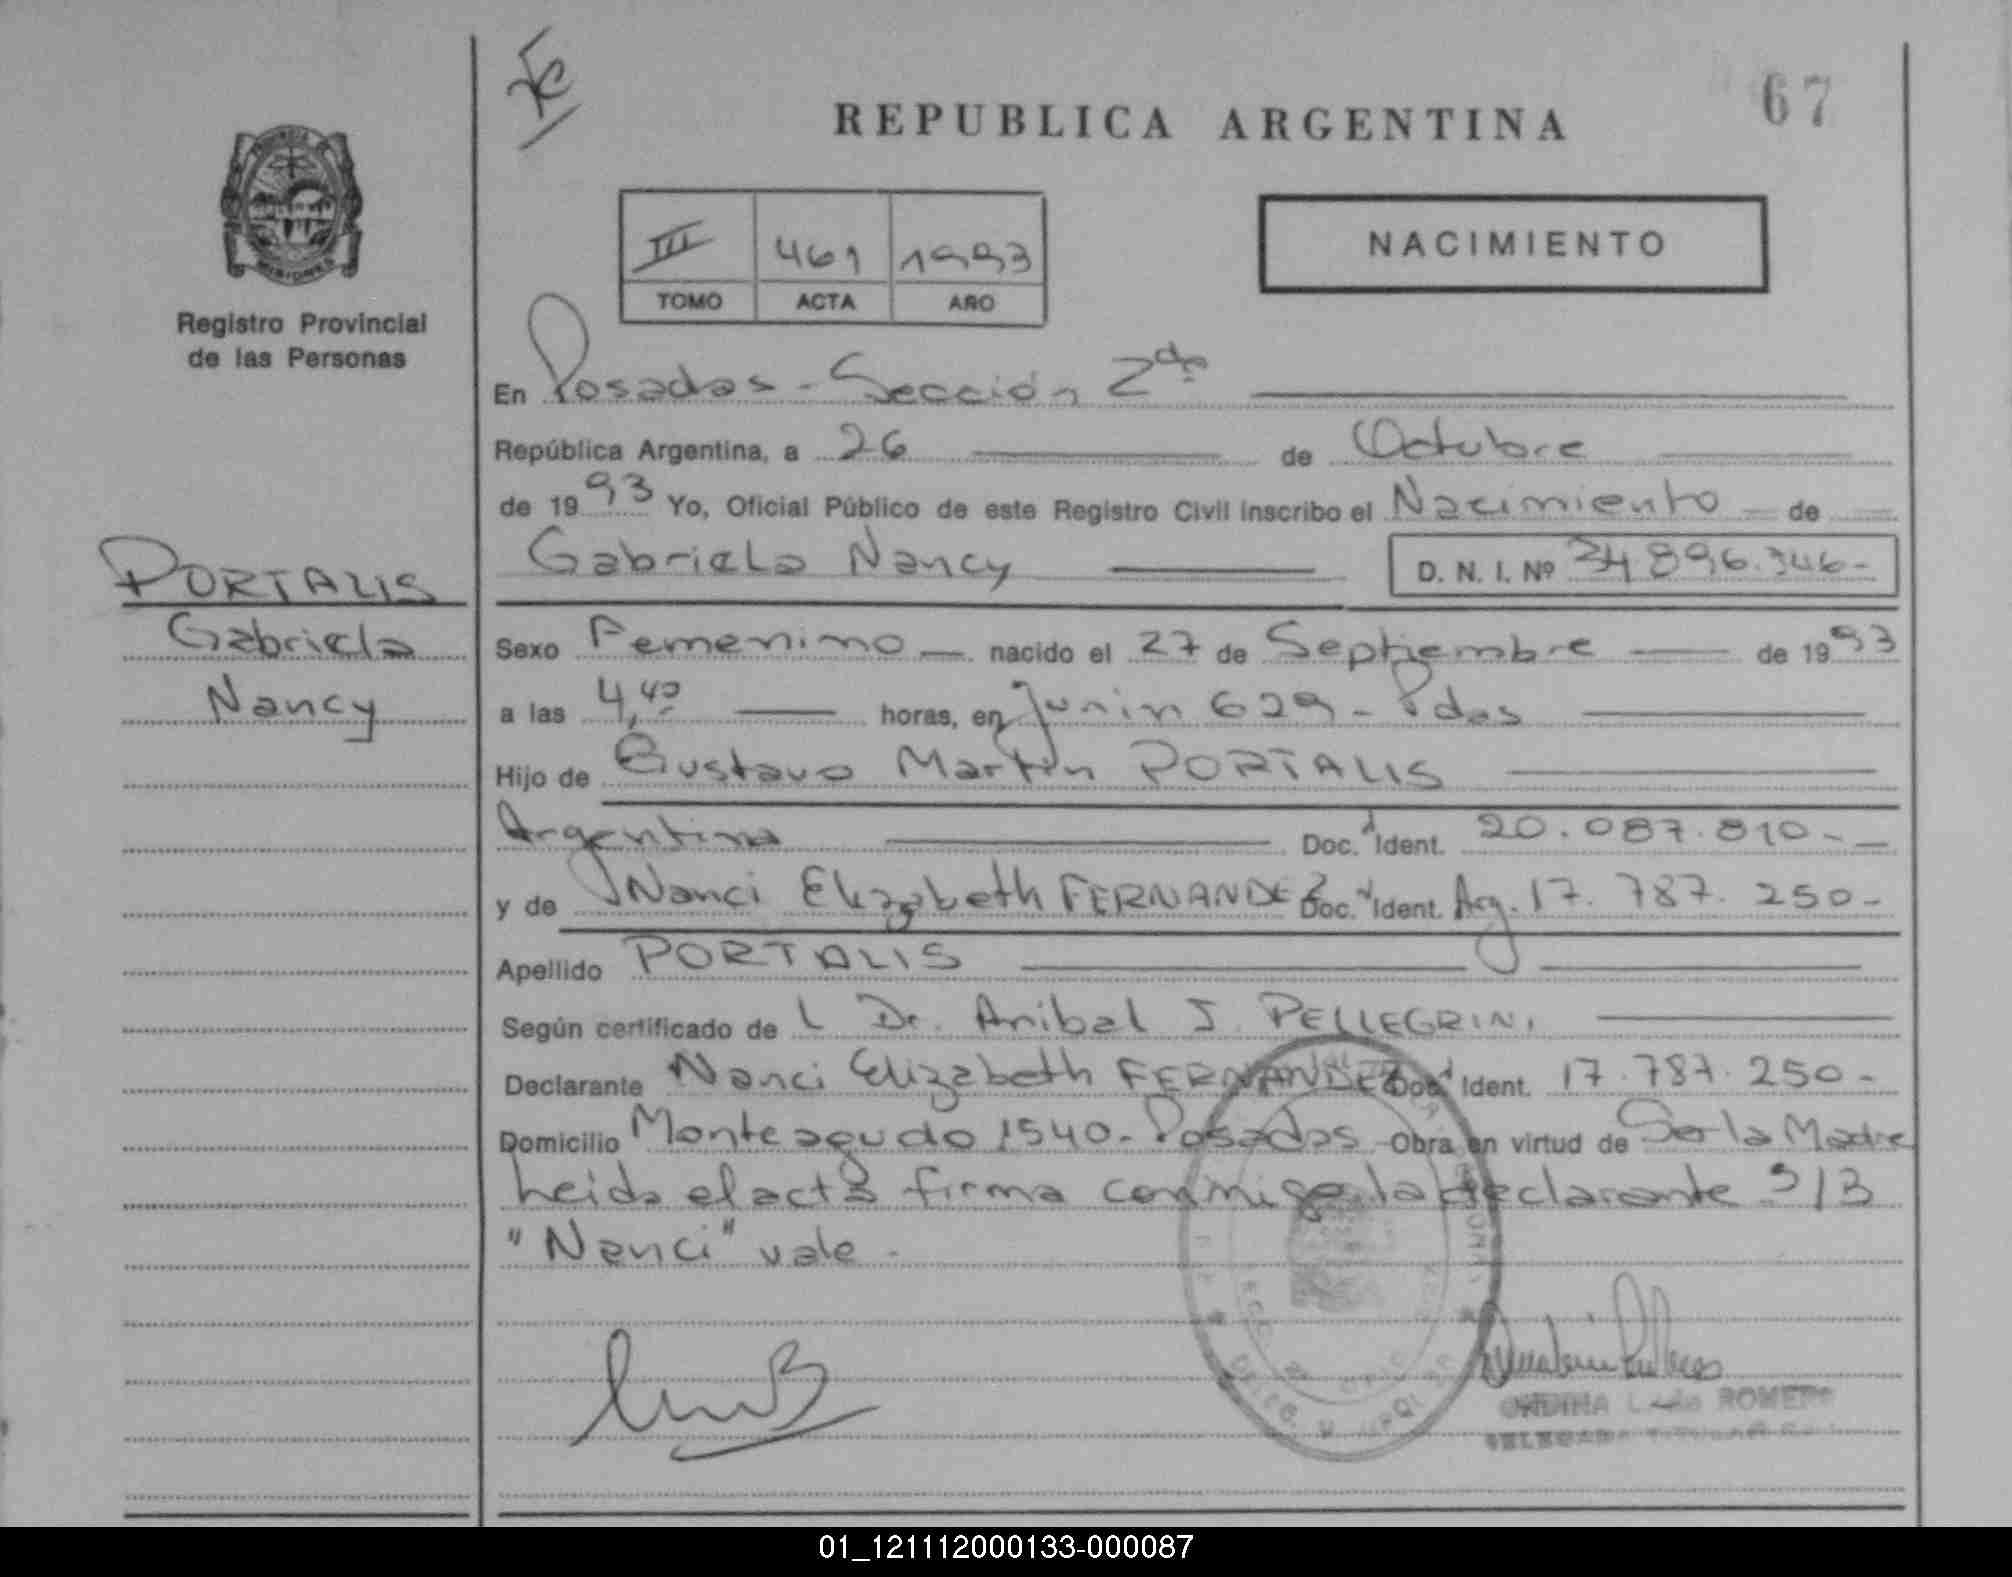 67
REPUBLICA ARGENTINA
III 461 1993
TOMO ACTA AÑO
NACIMIENTO
MISIONES
Registro Provincial
de las Personas
En Posadas - Sección 2da
República Argentina, a 26 de Octubre
de 1993 Yo, Oficial Público de este Registro Civil inscribo el Nacimiento de
Gabriela Nancy D. N. I. Nº 34.896.346-
PORTALIS
Gabriela
Nancy
Sexo Femenino nacido el 27 de Septiembre de 1993
a las 4,40 horas, en Junin 629 - Pdas
Hijo de Gustavo Martin PORTALIS
Argentina Doc. Ident. 20.087.810-
y de Nanci Elizabeth FERNANDEZ Doc. Ident. Arg. 17.787.250-
Apellido PORTALIS
Según certificado de L Dr. Anibal J. PELLEGRINI
Declarante Nanci Elizabeth FERNANDEZ Doc. Ident. 17.787.250-
Domicilio Monteagudo 1540 - Posadas Obra en virtud de Ser la Madre
Leida el acta firma conmigo la declarante S/B
"Nanci" vale.
ROMERO
01_121112000133-000087